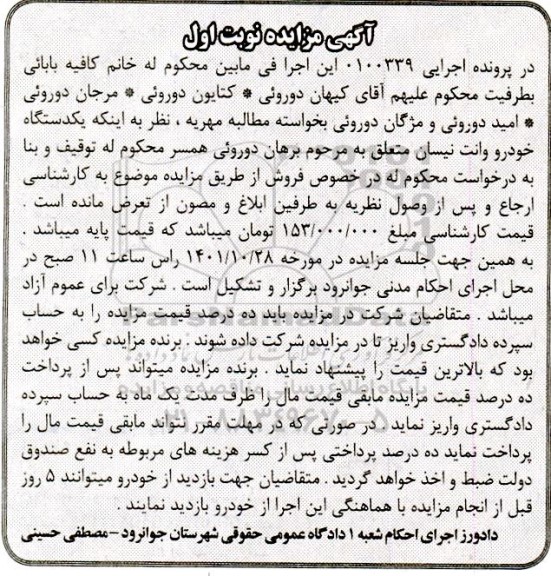 آگهی مزایده نوبت اول
در پرونده اجرایی ۰۱۰۰۳۳۹ این اجرا فی مابین محکوم له خانم کافیه بابائی
بطرفیت محکوم علیهم آقای کیهان دوروئی * کتایون دوروئی * مرجان دوروئی
* امید دوروئی و مژگان دوروئی بخواسته مطالبه مهریه ، نظر به اینکه یکدستگاه
خودرو وانت نیسان متعلق به مرحوم برهان دوروئی همسر محکوم له توقیف و بنا
به درخواست محکوم له در خصوص فروش از طریق مزایده موضوع به کارشناسی
ارجاع و پس از وصول نظریه به طرفین ابلاغ و مصون از تعرض مانده است .
قیمت کارشناسی مبلغ ۱۵۳/۰۰۰/۰۰۰ تومان میباشد که قیمت پایه میباشد .
به همین جهت جلسه مزایده در مورخه ۱۴۰۱/۱۰/۲۸ راس ساعت ۱۱ صبح در
محل اجرای احکام مدنی جوانرود برگزار و تشکیل است . شرکت برای عموم آزاد
میباشد . متقاضیان شرکت در مزایده باید ده درصد قیمت مزایده را به حساب
سپرده دادگستری واریز تا در مزایده شرکت داده شوند : برنده مزایده کسی خواهد
بود که بالاترین قیمت را پیشنهاد نماید . برنده مزایده میتواند پس از پرداخت
ده درصد قیمت مزایده مابقی قیمت مال را ظرف مدت یک ماه به حساب سپرده
دادگستری واریز نماید . در صورتی که در مهلت مقرر نتواند مابقی قیمت مال را
پرداخت نماید ده درصد پرداختی پس از کسر هزینه های مربوطه به نفع صندوق
دولت ضبط و اخذ خواهد گردید . متقاضیان جهت بازدید از خودرو میتوانند ۵ روز
قبل از انجام مزایده با هماهنگی این اجرا از خودرو بازدید نمایند .
دادورز اجرای احکام شعبه ۱ دادگاه عمومی حقوقی شهرستان جوانرود – مصطفی حسینی
ParsNamadData
پایگاه اطلاع رسانی مناقصه و مزایده